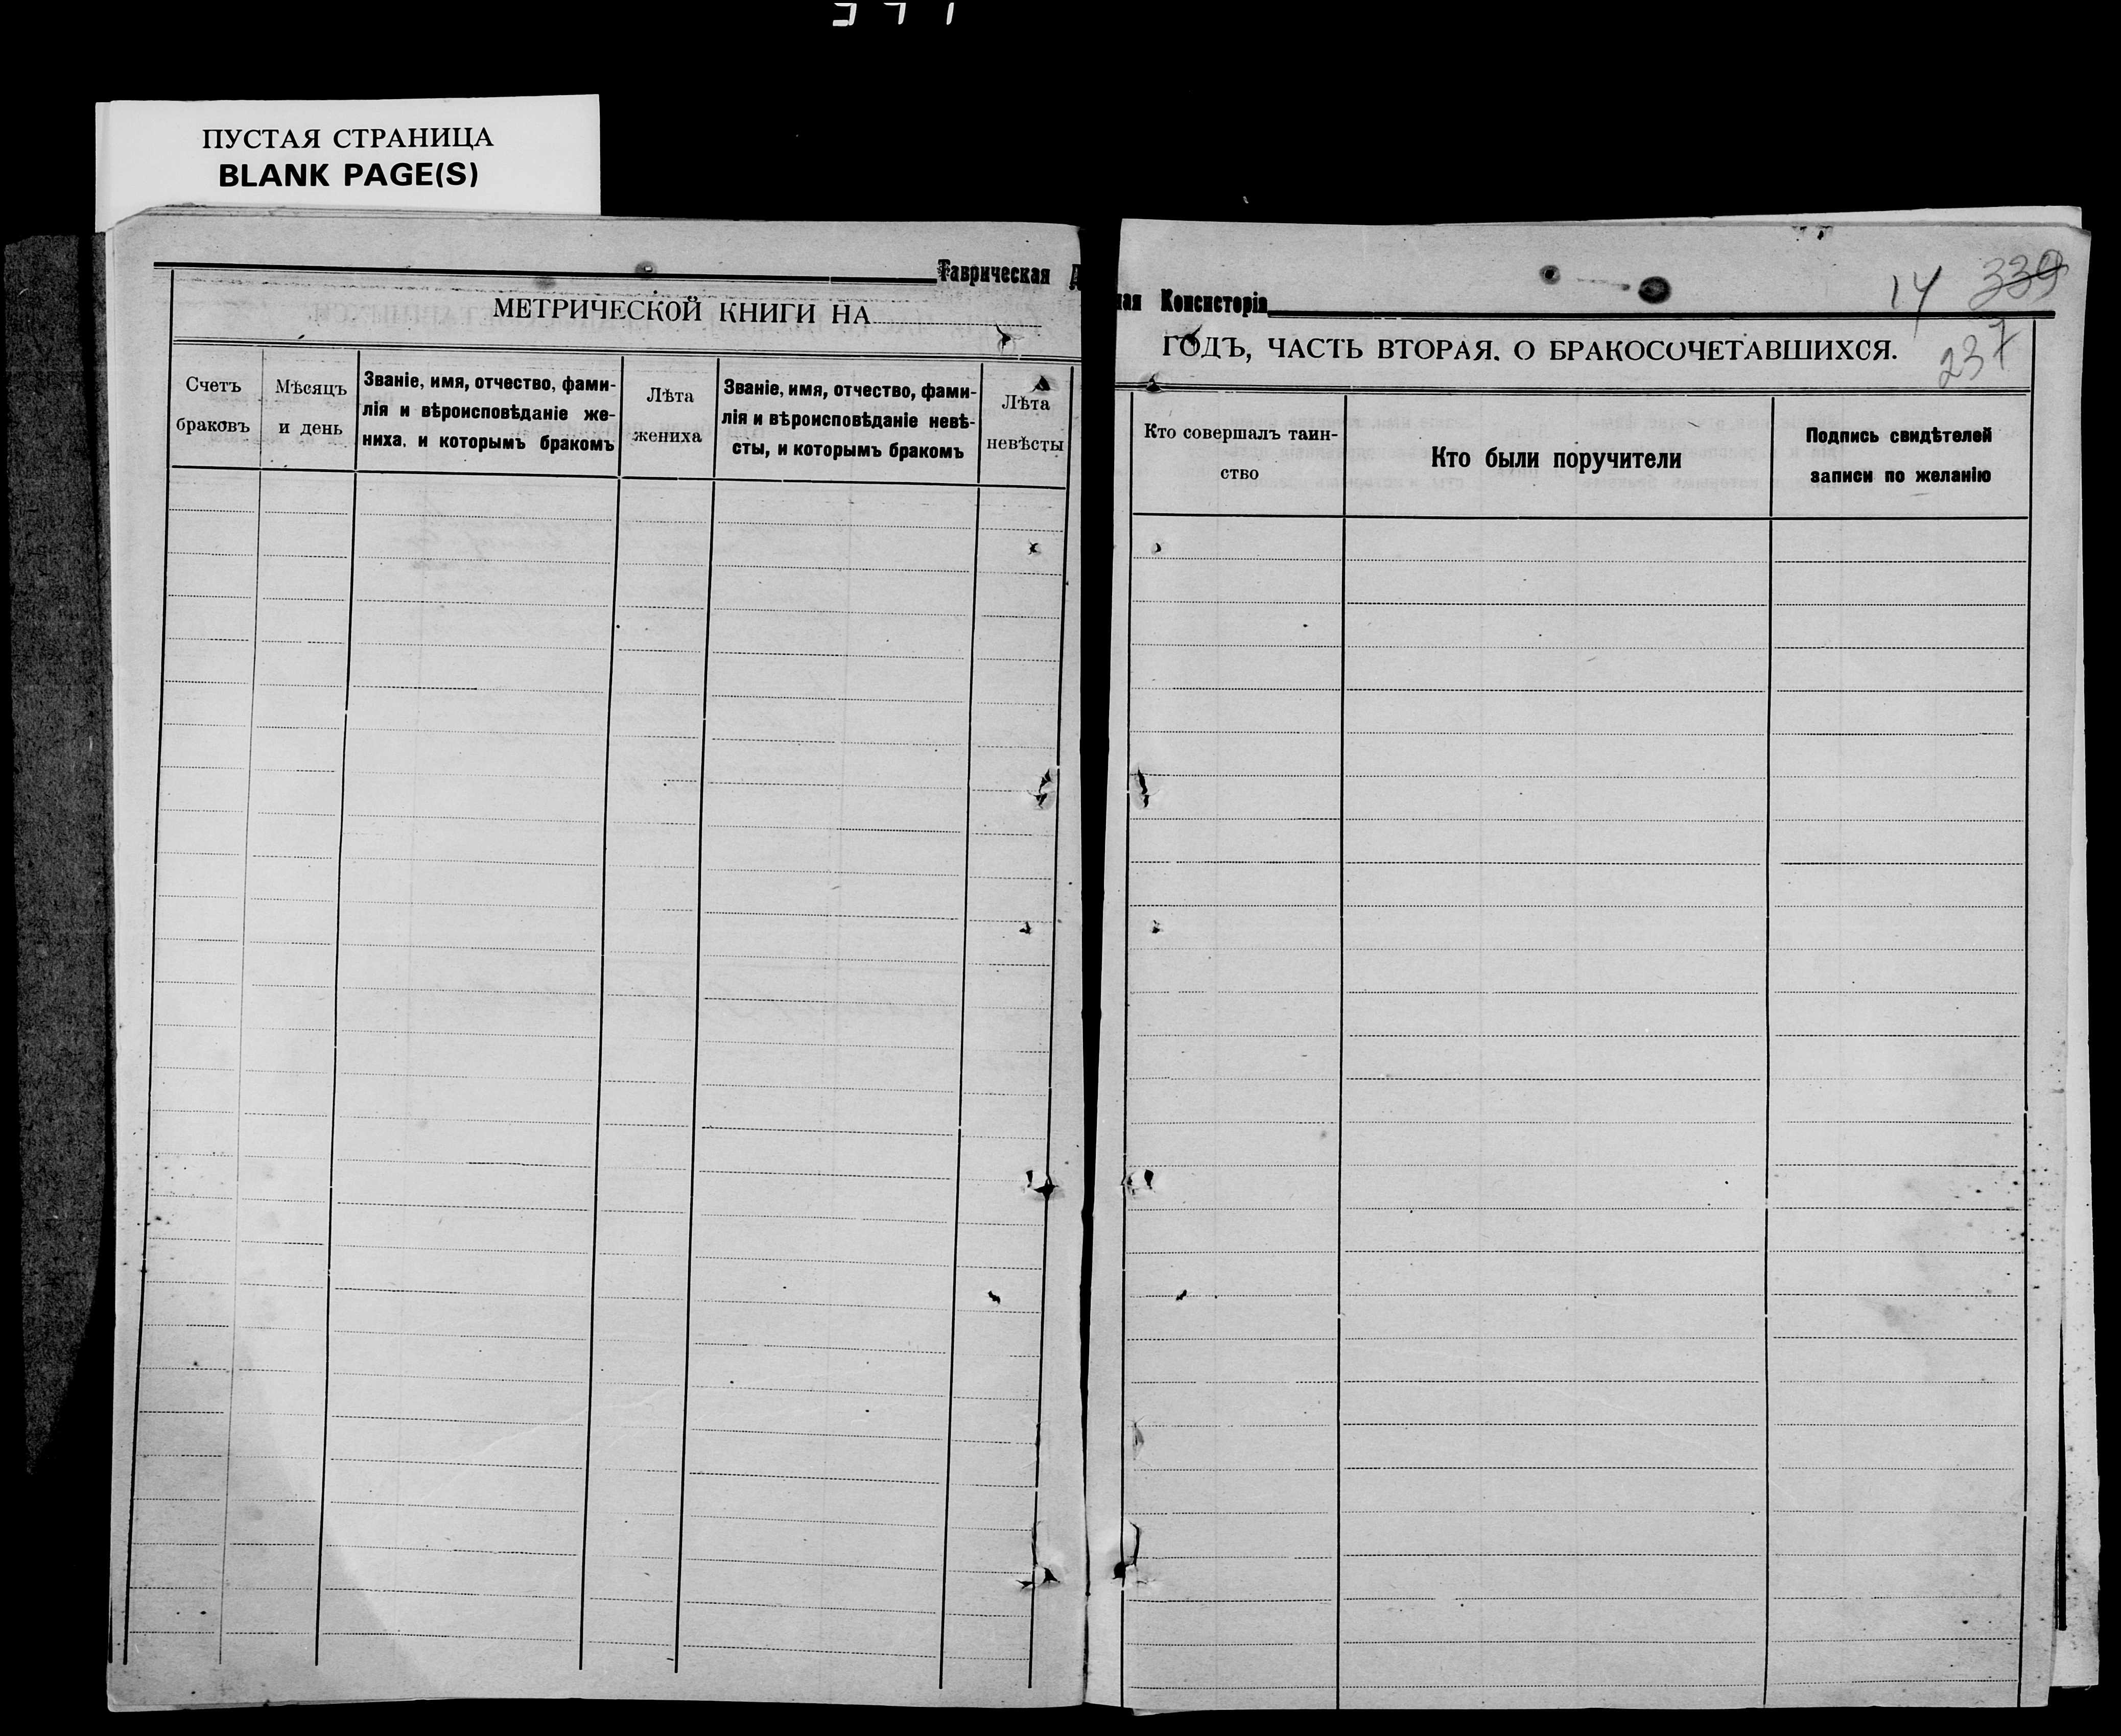 ПУСТАЯ СТРАНИЦА
BLANK PAGE(S)
Таврическая
МЕТРИЧЕСКОЙ КНИГИ НА
Счетъ браковъ
Мѣсяцъ и день
Званіе, имя, отчество, фами-
лія и вѣроисповѣданіе же-
ниха. и которымъ бракомъ
Лѣта жениха
Званіе, имя, отчество, фами-
лія и вѣроисповѣданіе невѣ-
сты, и которымъ бракомъ
Лѣта невѣсты
ная Консисторія
14 339
ГОДЪ, ЧАСТЬ ВТОРАЯ. О БРАКОСОЧЕТАВШИХСЯ.
237
Кто совершалъ таин-
ство
Кто были поручители
Подпись свидѣтелей
записи по желанію